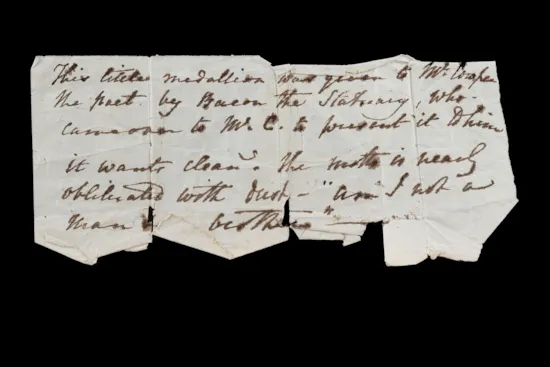 This little medallion was given to Mr. Cowper
the poet by Bacon the Statuary, who
came over to Mr. C. to present it to him
it wants cleang. the motto is nearly
obliterated with dust - "am I not a
man & brother"